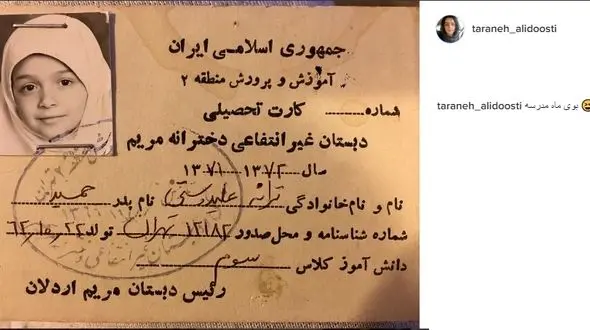 جمهوری اسلامی ایران
آموزش و پرورش منطقه ۲
شماره کارت تحصیلی
دبستان غیر انتفاعی دخترانه مریم
سال ۱۳۷۲-۱۳۷۱
نام و نام خانوادگی ترانه علیدوستی نام پدر حمید
شماره شناسنامه و محل صدور ۱۲۱۸۲ تهران تولد ۶۲,۱۰,۲۲
دانش آموز کلاس سوم
رئیس دبستان مریم اردلان
taraneh_alidoosti
taraneh_alidoosti بوی ماه مدرسه